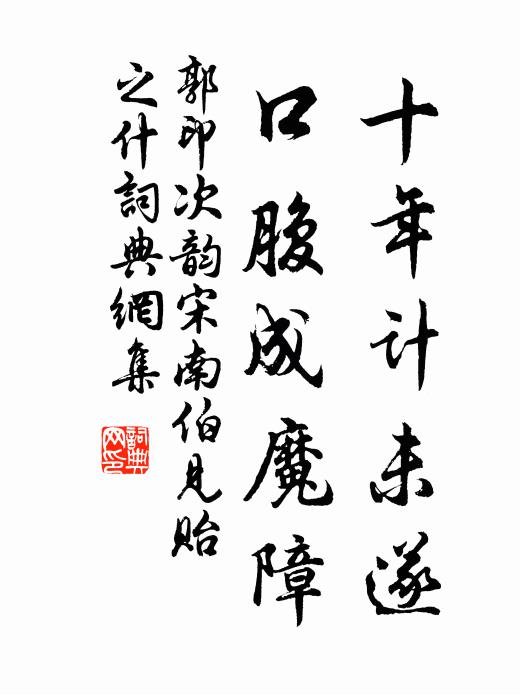 十年计未遂
口腹成魔障
郭印次韵宋南伯见贻
之什詞典網集
詞典網印